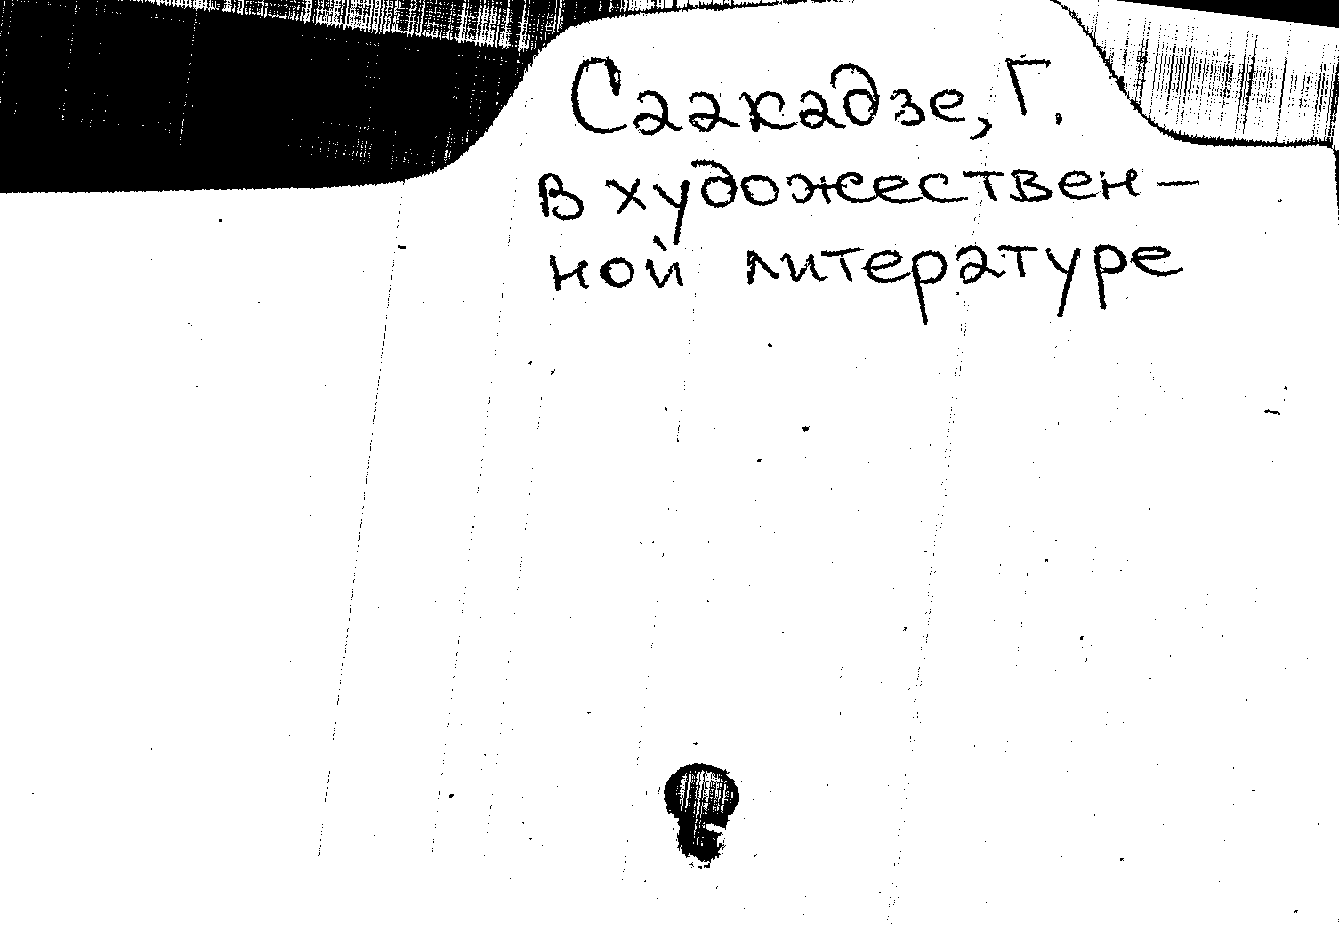 Саакадзе, Г.
в художествен-
ной литературе